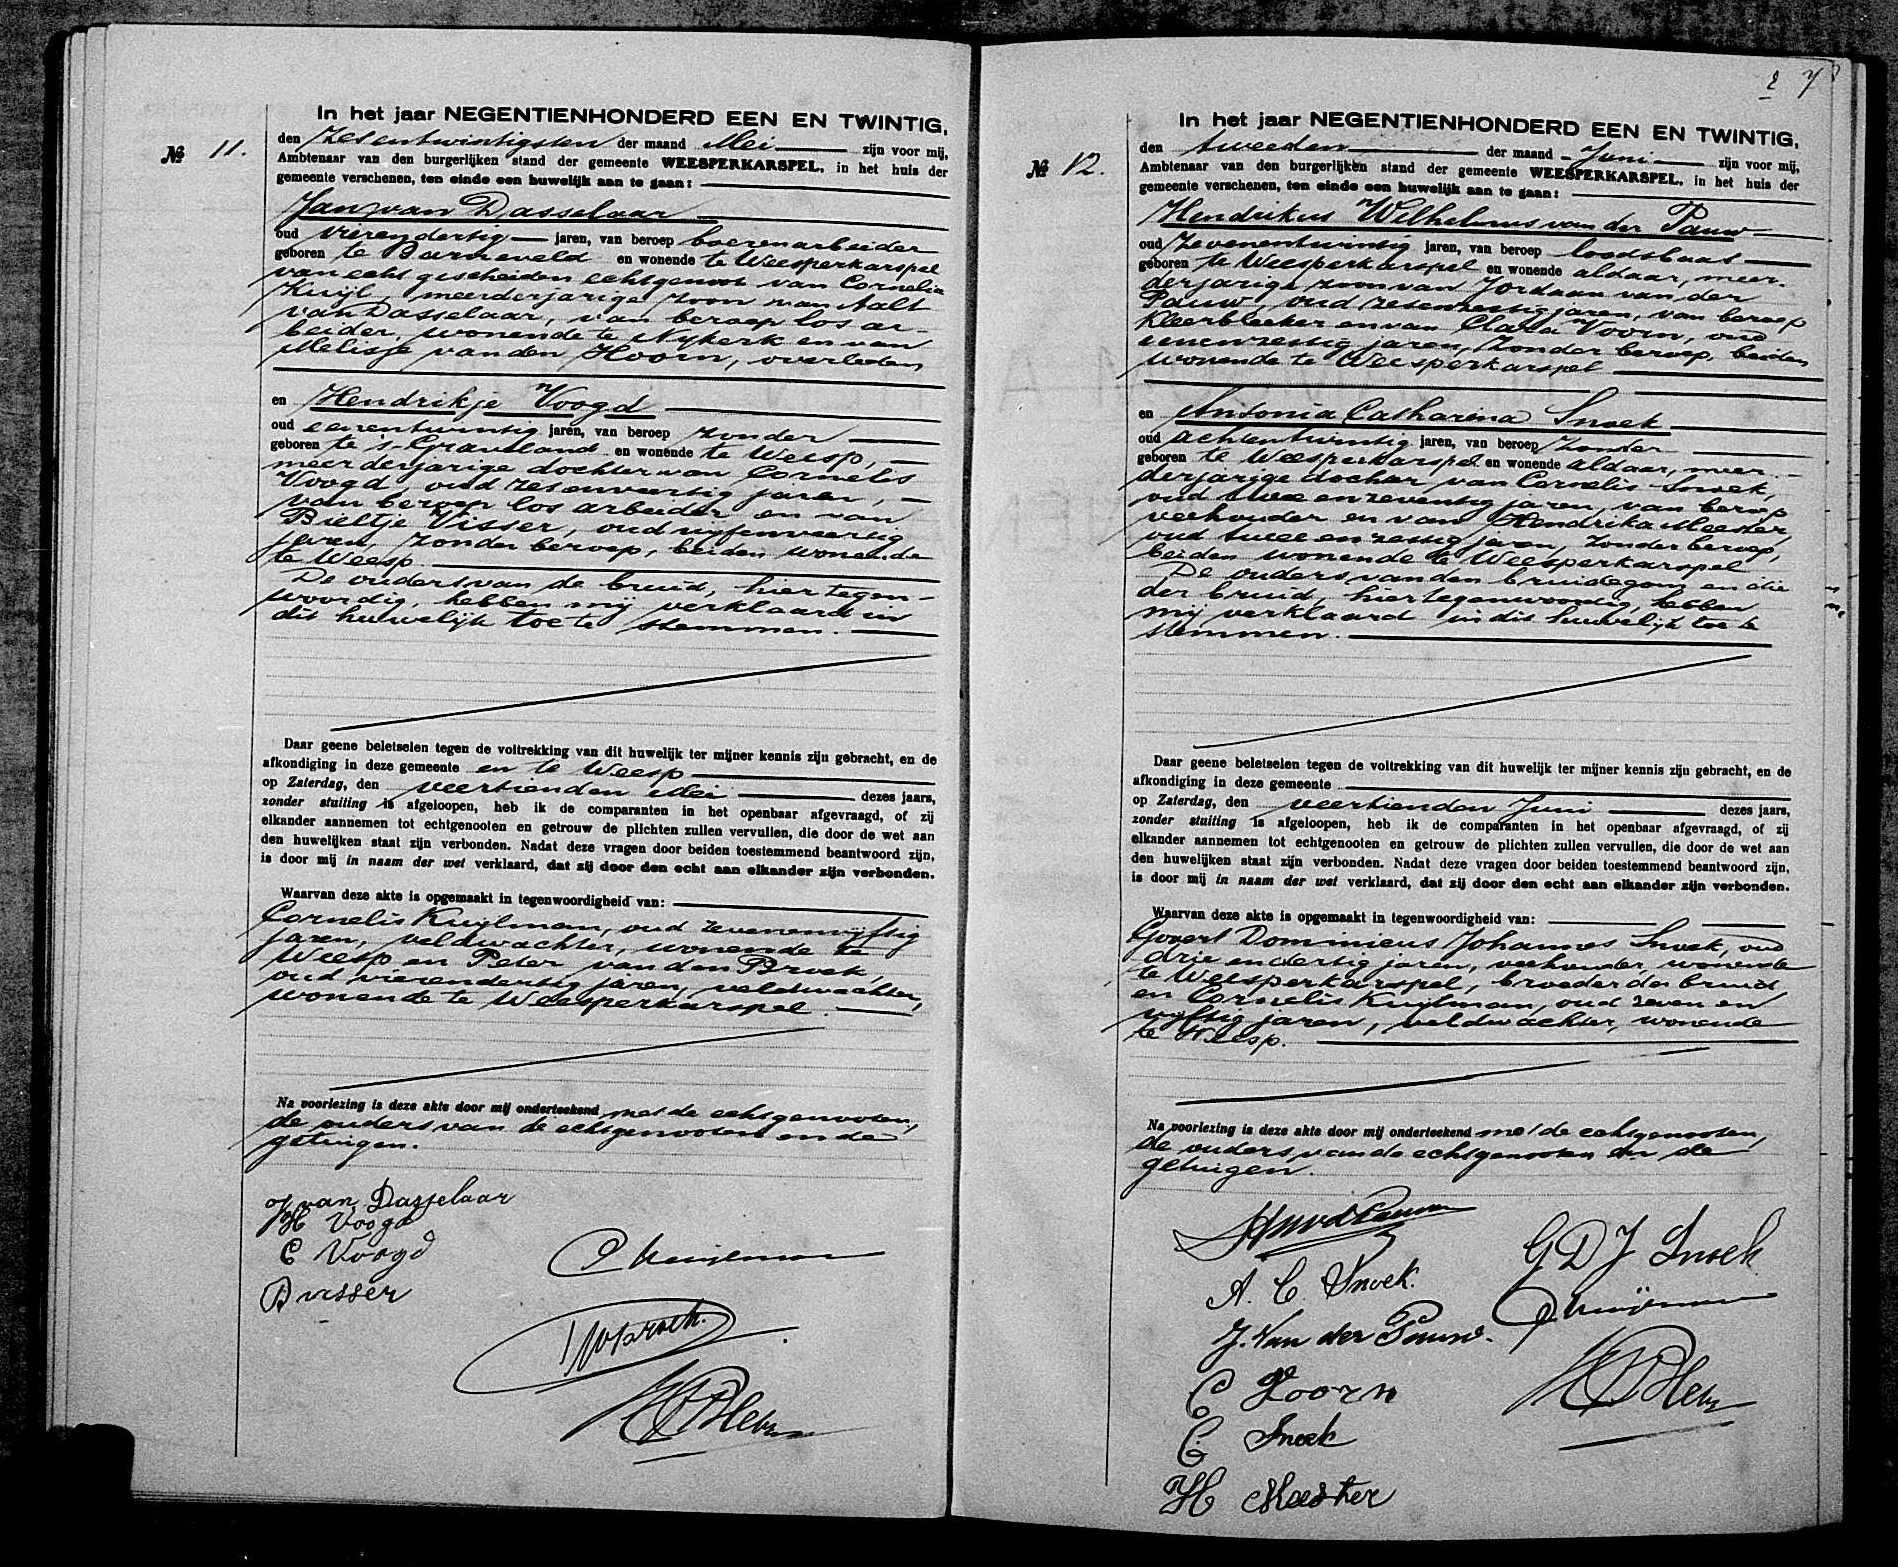 In het jaar NEGENTIENHONDERD EEN EN TWINTIG,
№ 11.
den zesentwintigsten der maand Mei zijn voor mij,
Ambtenaar van den burgerlijken stand der gemeente WEESPERKARSPEL, in het huis der
gemeente verschenen, ten einde een huwelijk aan te gaan:
Jan van Dasselaar
oud vierendertig jaren, van beroep boerenarbeider
geboren te Barneveld en wonende te Weesperkarspel
van echt gescheiden echtgenoot van Cornelia
Kuijl, meerderjarige zoon van Aalt
van Dasselaar, van beroep los ar-
beider, wonende te Nijkerk en van
Melisje van den Hoorn, overleden
en Hendrikje Voogd
oud eenentwintig jaren, van beroep zonder
geboren te 's-Graveland en wonende te Weesp,
meerderjarige dochter van Cornelis
Voogd, oud zesenveertig jaren,
van beroep los arbeider en van
Bieltje Visser, oud vijfenveertig
jaren zonder beroep, beiden wonende
te Weesp
De ouders van de bruid, hier tegen-
woordig, hebben mij verklaard in
dit huwelijk toe te stemmen.
Daar geene beletselen tegen de voltrekking van dit huwelijk ter mijner kennis zijn gebracht, en de
afkondiging in deze gemeente en te Weesp
op Zaterdag, den veertienden Mei dezes jaars,
zonder stuiting is afgeloopen, heb ik de comparanten in het openbaar afgevraagd, of zij
elkander aannemen tot echtgenooten en getrouw de plichten zullen vervullen, die door de wet aan
den huwelijken staat zijn verbonden. Nadat deze vragen door beiden toestemmend beantwoord zijn,
is door mij in naam der wet verklaard, dat zij door den echt aan elkander zijn verbonden.
Waarvan deze akte is opgemaakt in tegenwoordigheid van:
Cornelis Kuijlman, oud zevenenvijftig
jaren, veldwachter, wonende te
Weesp en Peter van den Broek,
oud vierendertig jaren, veldwachter,
wonende te Weesperkarspel.
Na voorlezing is deze akte door mij onderteekend met de echtgenooten,
de ouders van de echtgenoote en de
getuigen.
J van Dasselaar
H Voogd
C Voogd
B visser
C Kuijlman
2 7
In het jaar NEGENTIENHONDERD EEN EN TWINTIG,
№ 12.
den tweeden der maand Juni zijn voor mij,
Ambtenaar van den burgerlijken stand der gemeente WEESPERKARSPEL, in het huis der
gemeente verschenen, ten einde een huwelijk aan te gaan:
Hendrikus Wilhelmus van der Pauw
oud zevenentwintig jaren, van beroep loodsbaas
geboren te Weesperkarspel en wonende aldaar, meer-
derjarige zoon van Jordaan van der
Pauw, oud zesenzestig jaren, van beroep
kleerbleeker en van Clara Voorn, oud
eenenzestig jaren, zonder beroep, beiden
wonende te Weesperkarspel
en Antonia Catharina Snoek
oud achtentwintig jaren, van beroep zonder
geboren te Weesperkarspel en wonende aldaar, meer-
derjarige dochter van Cornelis Snoek,
oud twee en zeventig jaren, van beroep
veehouder en van Hendrika Meester,
oud twee en zestig jaren, zonder beroep,
beiden wonende te Weesperkarspel
De ouders van den bruidegom en die
der bruid, hier tegenwoordig, hebben
mij verklaard in dit huwelijk toe te
stemmen.
Daar geene beletselen tegen de voltrekking van dit huwelijk ter mijner kennis zijn gebracht, en de
afkondiging in deze gemeente
op Zaterdag, den veertienden Juni dezes jaars,
zonder stuiting is afgeloopen, heb ik de comparanten in het openbaar afgevraagd, of zij
elkander aannemen tot echtgenooten en getrouw de plichten zullen vervullen, die door de wet aan
den huwelijken staat zijn verbonden. Nadat deze vragen door beiden toestemmend beantwoord zijn,
is door mij in naam der wet verklaard, dat zij door den echt aan elkander zijn verbonden.
Waarvan deze akte is opgemaakt in tegenwoordigheid van:
Govert Dominicus Johannes Snoek, oud
drie en dertig jaren, veehouder, wonende
te Weesperkarspel, broeder der bruid
en Cornelis Kuijlman, oud zeven en
vijftig jaren, veldwachter, wonende
te Weesp.
Na voorlezing is deze akte door mij onderteekend met de echtgenooten,
de ouders van de echtgenooten en de
getuigen.
A. C. Snoek.
J. Van der Pauw.
C Voorn
C. Snoek
H Meester
G D J Snoek
C Kuijlman